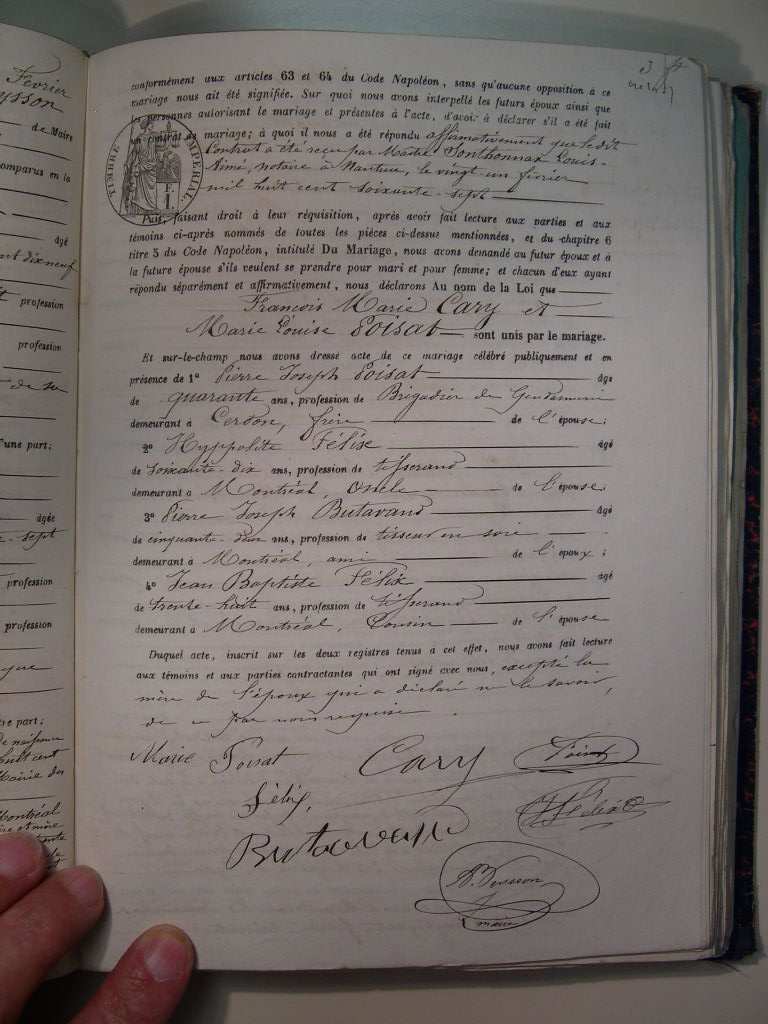 Février
de Maire
comparus en la
agé
ent dix neuf
profession
profession
de sa
d'une part;
âgée
- sept
profession
profession
que
tre part;
de naissance
huit cent
Mairie des
Montréal
ère et mère
3
conformément aux articles 63 et 64 du Code Napoléon, sans qu'aucune opposition à ce
mariage nous ait été signifiée. Sur quoi nous avons interpellé les futurs époux ainsi que
les personnes autorisant le mariage et présentes à l'acte, d'avoir à déclarer s'il a été fait
un contrat de mariage; à quoi il nous a été répondu affirmativement que le dit
Contrat a été reçu par Maître Sonthonnax Louis-
Aimé, notaire à Nantua, le vingt un février
mil huit cent soixante-sept
TIMBRE IMPÉRIAL
F.
1.
Puis, faisant droit à leur réquisition, après avoir fait lecture aux parties et aux
témoins ci-après nommés de toutes les pièces ci-dessus mentionnées, et du chapitre 6
titre 5 du Code Napoléon, intitulé Du Mariage, nous avons demandé au futur époux et à
la future épouse s'ils veulent se prendre pour mari et pour femme; et chacun d'eux ayant
répondu séparément et affirmativement, nous déclarons Au nom de la Loi que
François Marie Cary et
Marie Louise Poisat sont unis par le mariage.
Et sur-le-champ nous avons dressé acte de ce mariage célébré publiquement et en
présence de 1° Pierre Joseph Poisat âgé
de quarante ans, profession de Brigadier de Gendarmerie
demeurant à Cerdon, frère de l'épouse;
2° Hyppolite Félix âgé
de soixante-dix ans, profession de tisserand
demeurant à Montréal, oncle de l'épouse;
3° Pierre Joseph Butavand âgé
de cinquante deux ans, profession de tisseur en soie
demeurant à Montréal, ami de l'époux;
4° Jean Baptiste Félix âgé
de trente-huit ans, profession de tisserand
demeurant à Montréal, Cousin de l'épouse
Duquel acte, inscrit sur les deux registres tenus à cet effet, nous avons fait lecture
aux témoins et aux parties contractantes qui ont signé avec nous, excepté la
mère de l'époux qui a déclaré ne le savoir,
de ce par nous requise.
Marie Poisat Cary Poisat
Félix, Félix
Butavand
maire